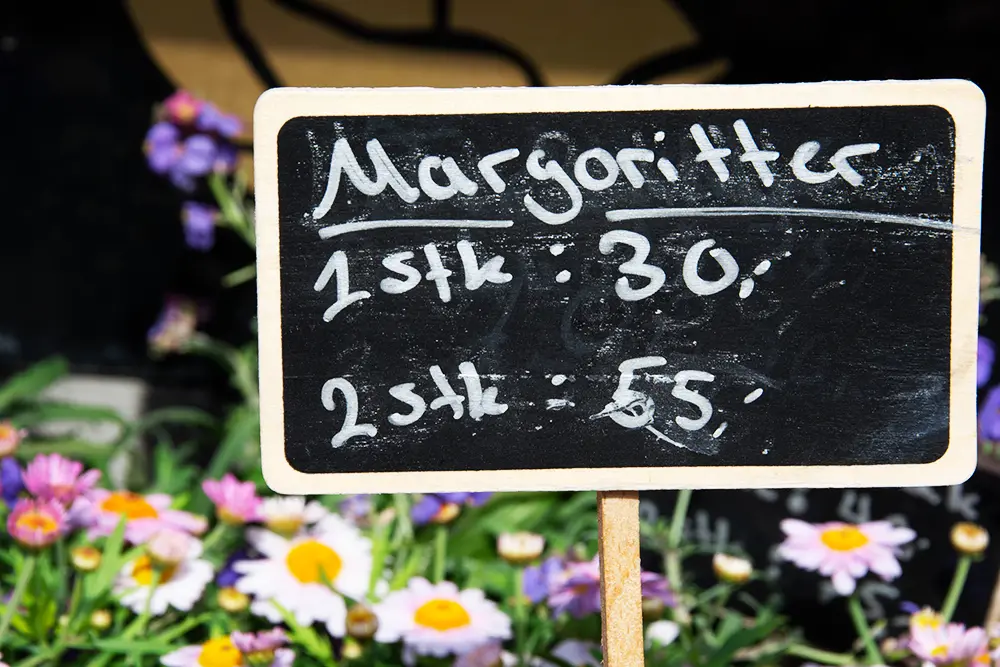 Margoritter
1 stk : 30,-
2 stk : 55,-